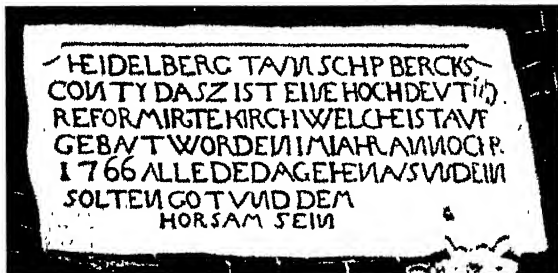 HEIDELBERG TAUNSCHP BERCKS
COUNTY DASZ IST EINE HOCHDEVT
REFORMIRTE KIRCH WELCHE IST AVF
GEBAVT WORDEN IM IAHR ANNO CIR
1766 ALLE DE DA GEHEN AVS UND EIN
SOLTEN GOT VND DEM
HORSAM SEIN